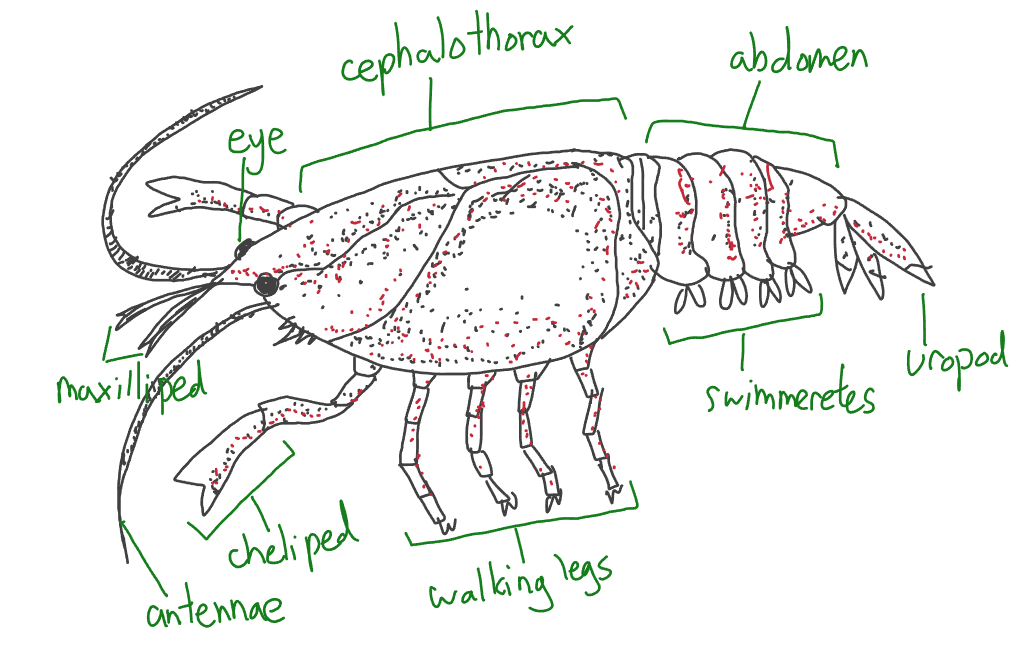 cephalothorax
abdomen
eye
maxilliped
uropod
swimmeretes
cheliped
walking legs
antennae